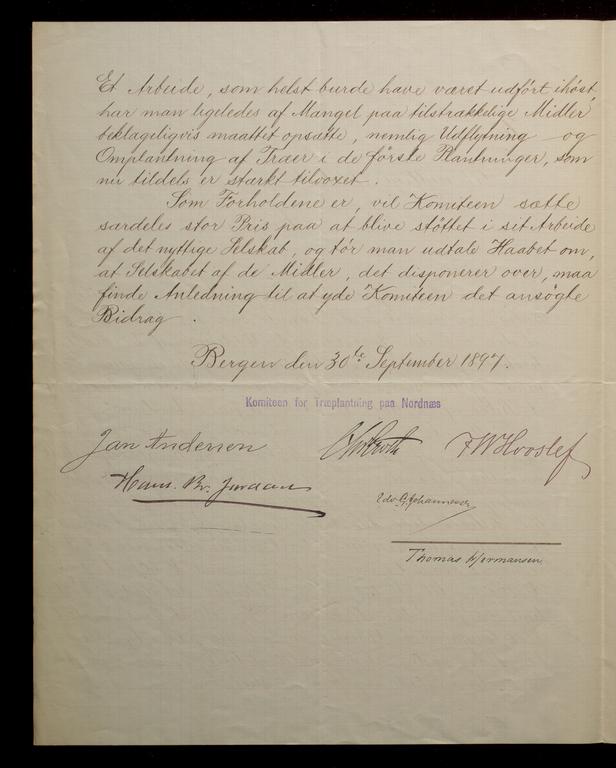 Et Arbeide, som helst burde have været udført ihøst,
har man ligeledes af Mangel paa tilstrækkelige Midler
beklageligvis maattet opsætte, nemlig Udflytning og
Omplantning af Træer i de første Plantninger, som
nu tildels er stærkt tilvoxet.
Som Forholdene er, vil Komiteen sætte
særdeles stor Pris paa at blive støttet i sit Arbeide
af det nyttige Selskab, og tør man udtale Haabet om,
at Selskabet af de Midler, det disponerer over, maa
finde Anledning til at yde Komiteen det ansøgte
Bidrag.
Bergen den 30te September 1897.
Komiteen for Træplantning paa Nordnæs
Jan Andersen
F W Hvoslef
Hans Br.
Edv. G. Johannesen
Thomas Hermansen